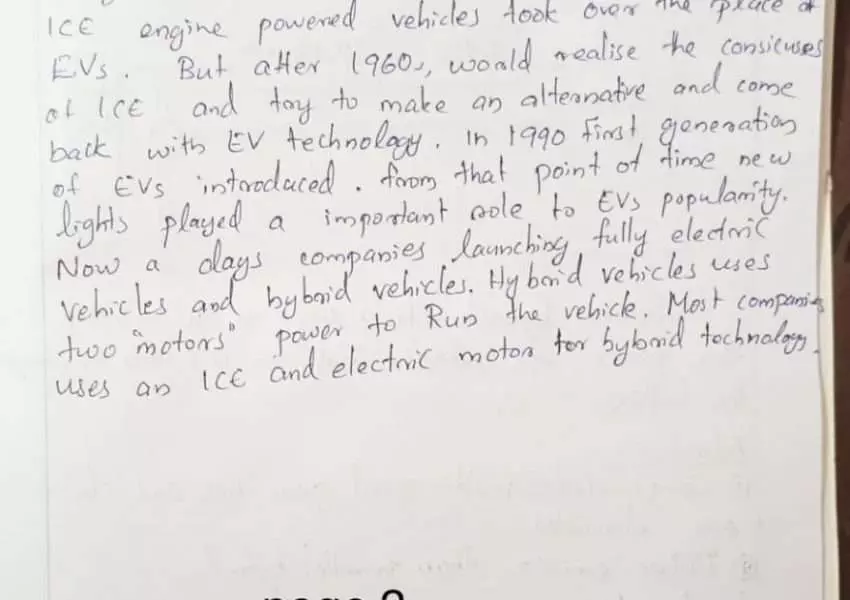 ICE engine powered vehicles took over the place of
EVs. But after 1960s, world realise the consicuses
of ICE and try to make an alternative and come
back with EV technology. In 1990 first generation
of EVs introduced. from that point of time new
lights played a important role to EVs popularity.
Now a days companies launching fully electric
vehicles and hybrid vehicles. Hybrid vehicles uses
two "motors" power to Run the vehicle. Most companies
uses an ICE and electric motor for hybrid technology.